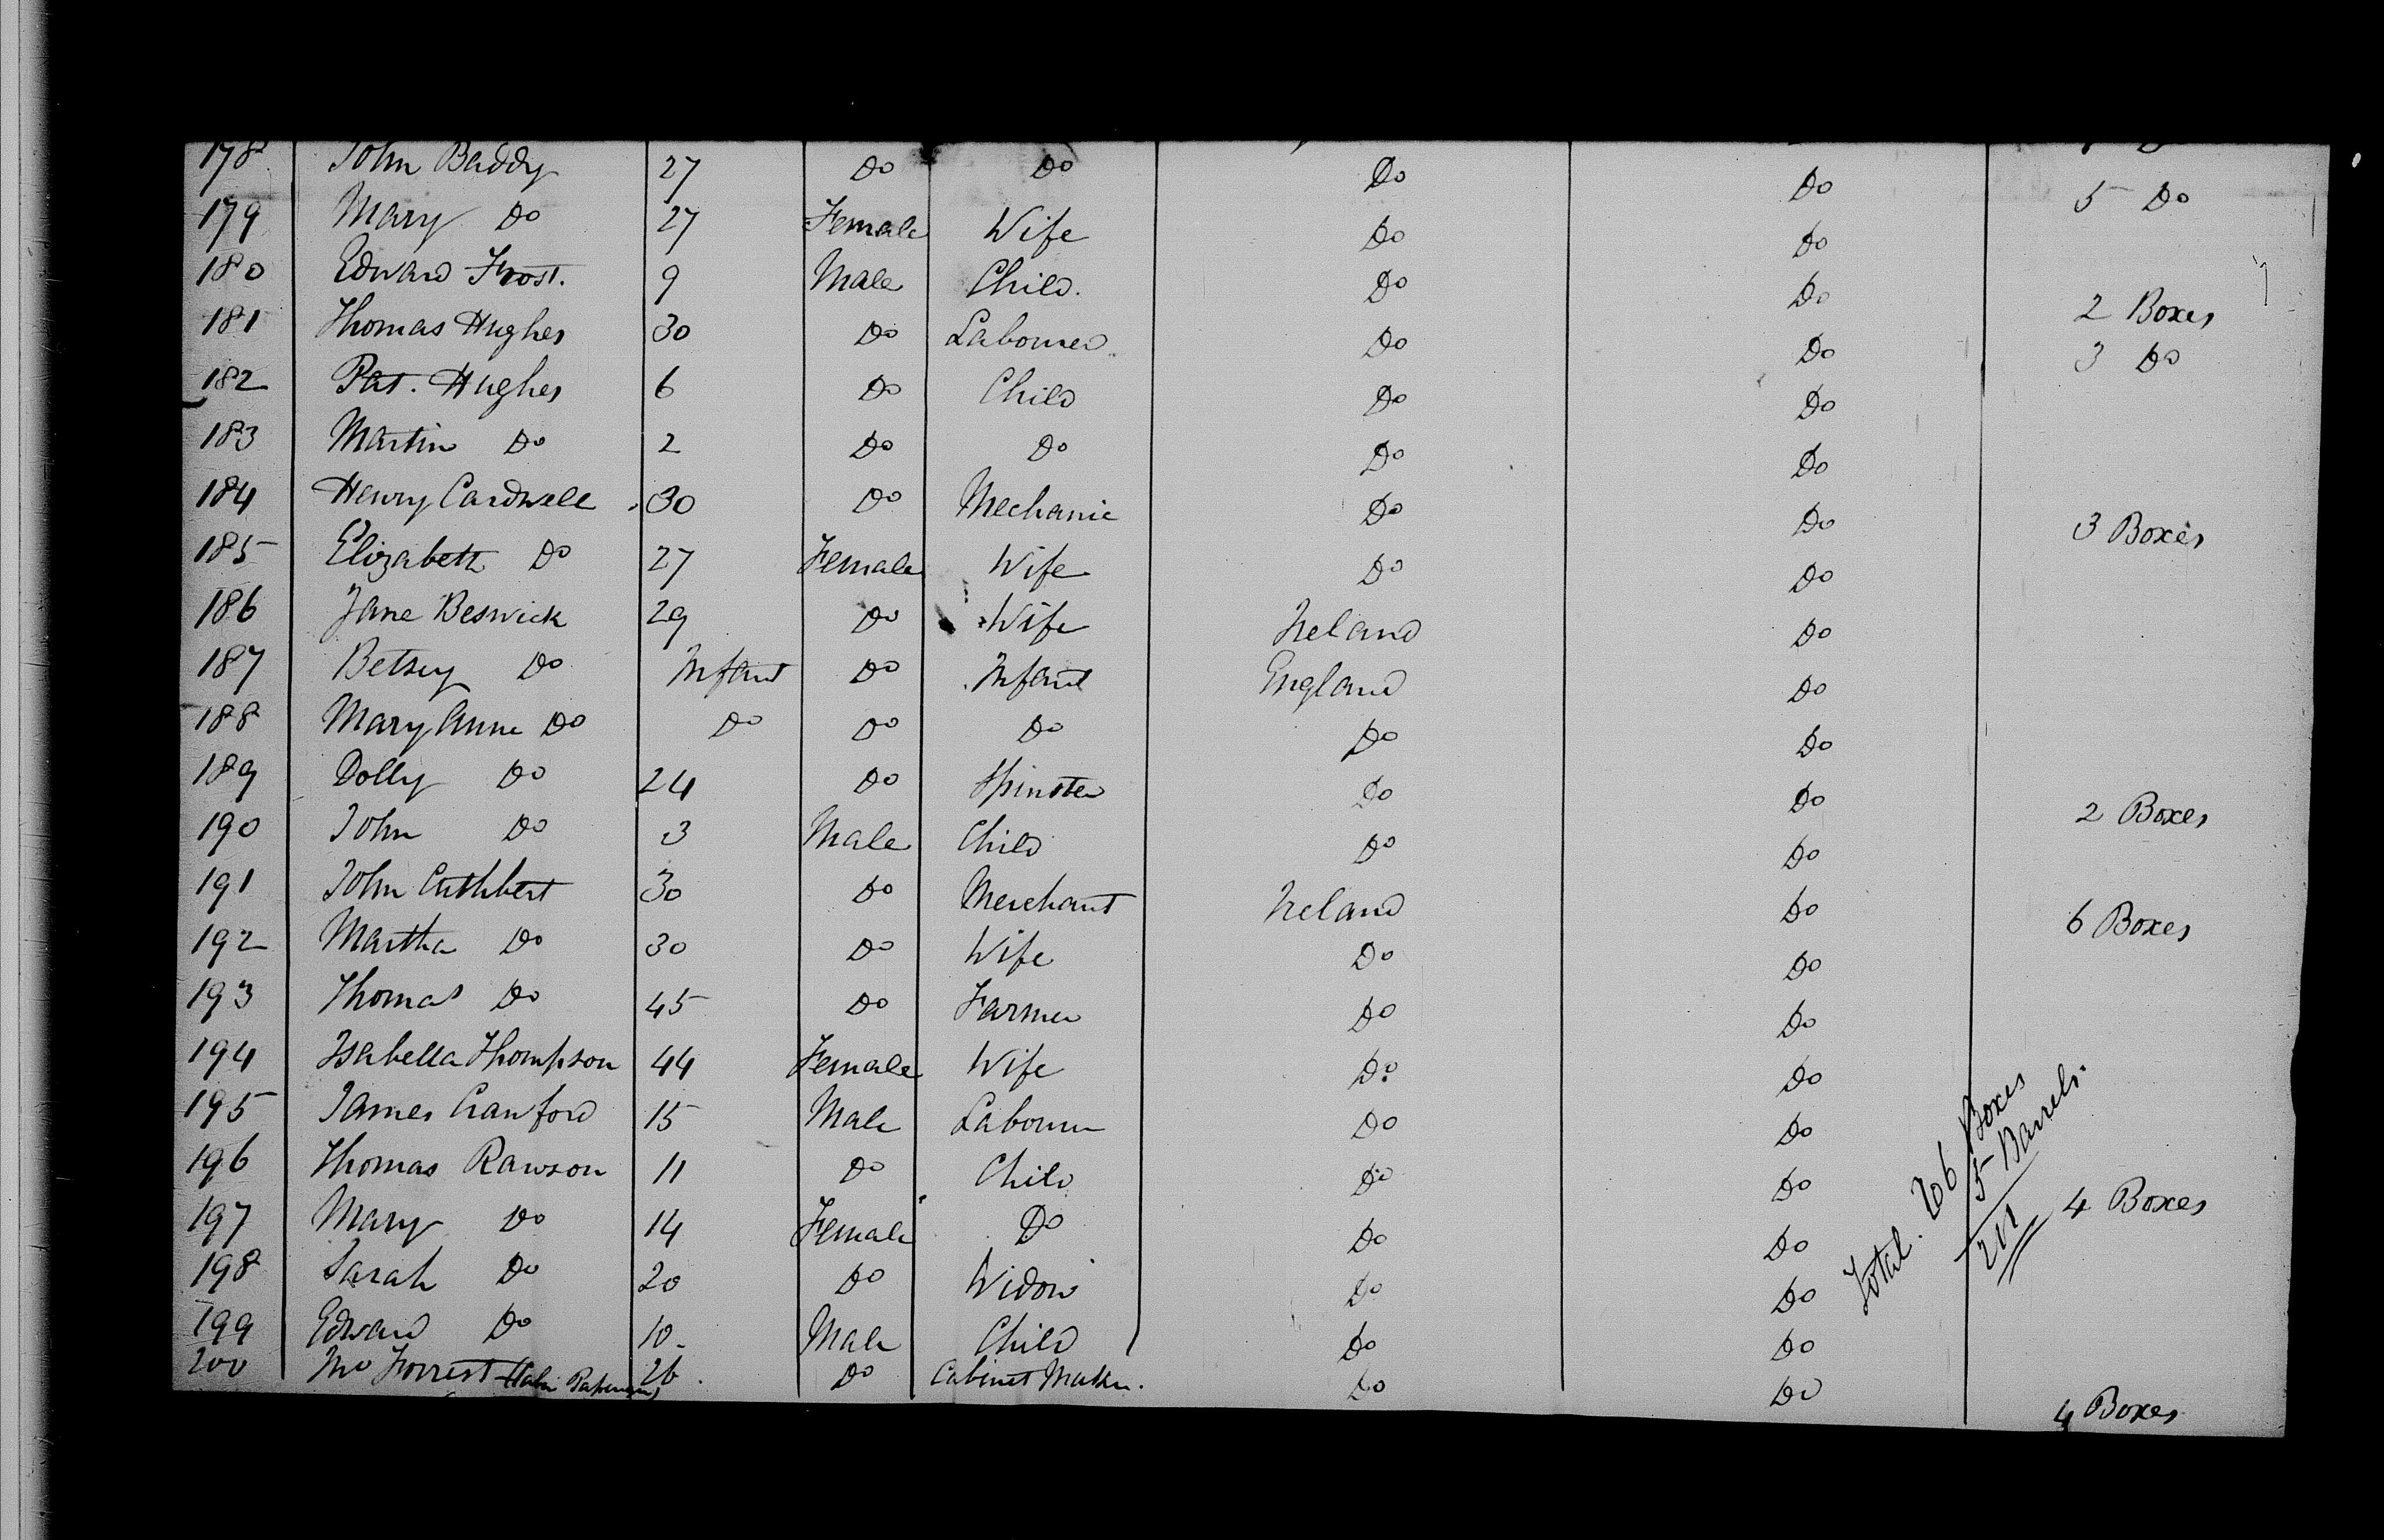 178 John Baddy 27 Do Do Do Do 5 Do
179 Mary Do 27 Female Wife Do Do
180 Edward Frost. 9 Male Child. Do Do 2 Boxes
181 Thomas Hughes 30 Do Labourer Do Do 3 Do
182 Pat. Hughes 6 Do Child Do Do
183 Martin Do 2 Do Do Do Do
184 Henry Cardwell 30 Do Mechanic Do Do 3 Boxes
185 Elizabeth Do 27 Female Wife Do Do
186 Jane Beswick 29 Do Wife Ireland Do
187 Betsey Do Infant Do Infant England Do
188 Mary Anne Do Do Do Do Do Do
189 Dolly Do 24 Do Spinster Do Do 2 Boxes
190 John Do 3 Male Child Do Do
191 John Cuthbert 30 Do Merchant Ireland Do 6 Boxes
192 Martha Do 30 Do Wife Do Do
193 Thomas Do 45 Do Farmer Do Do
194 Isabella Thompson 44 Female Wife Do Do
195 James Crawford 15 Male Labourer Do Do
196 Thomas Rawson 11 Do Child Do Do
197 Mary Do 14 Female Do Do Do 4 Boxes
198 Sarah Do 20 Do Widow Do Do
199 Edward Do 10 Male Child Do Do
200 Forrest 26 Do Cabinet Maker. Do Do 4 Boxes
Total. Boxes
5 Barrels.